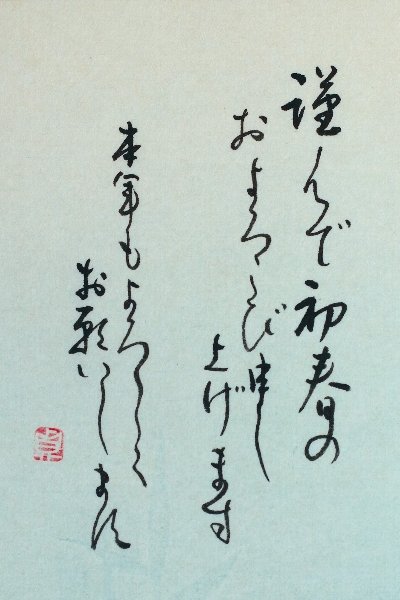 謹んで初春の
およろこび申し
上げます
本年もよろしく
お願いします